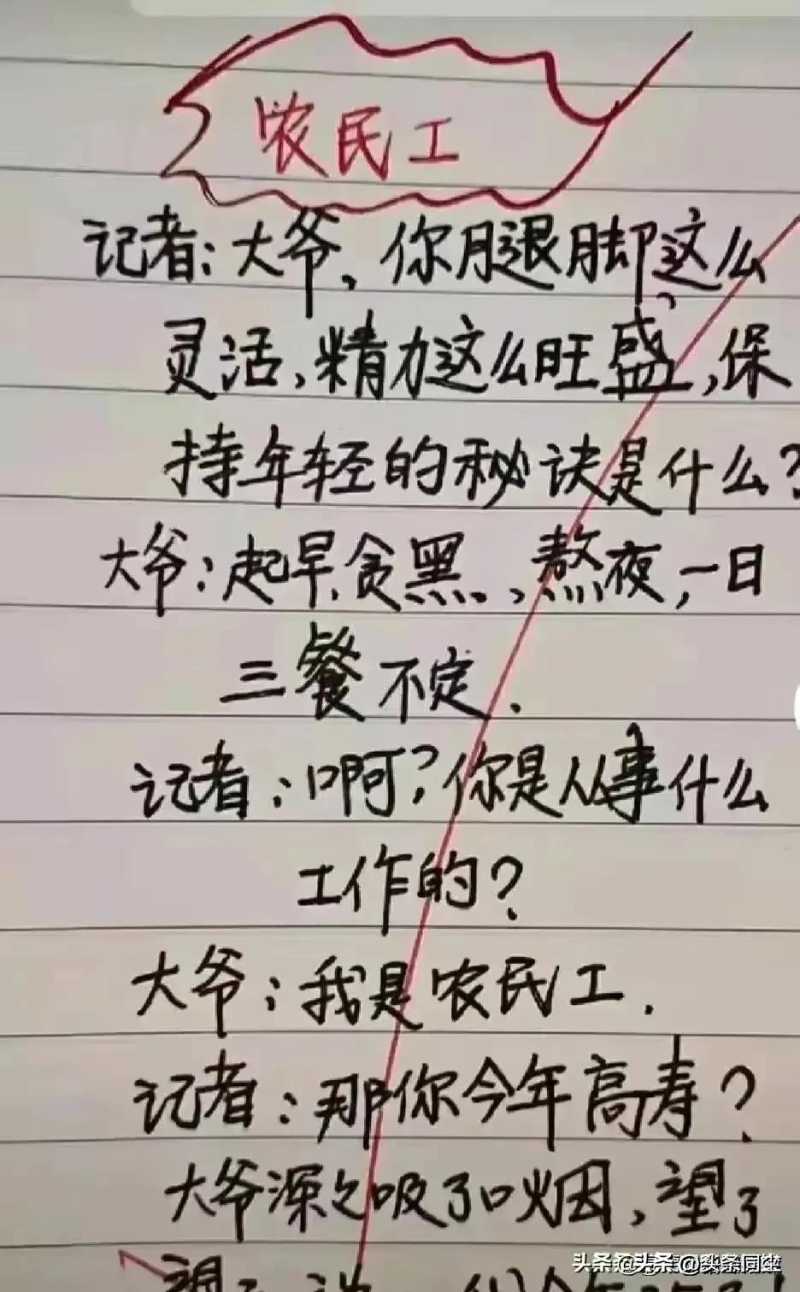 农民工
记者:大爷,你腿脚这么
灵活,精力这么旺盛,保
持年轻的秘诀是什么?
大爷:起早贪黑、熬夜,一日
三餐不定.
记者:啊?你是从事什么
工作的?
大爷:我是农民工.
记者:那你今年高寿?
大爷深深吸了口烟,望了
头条 @头条同燉